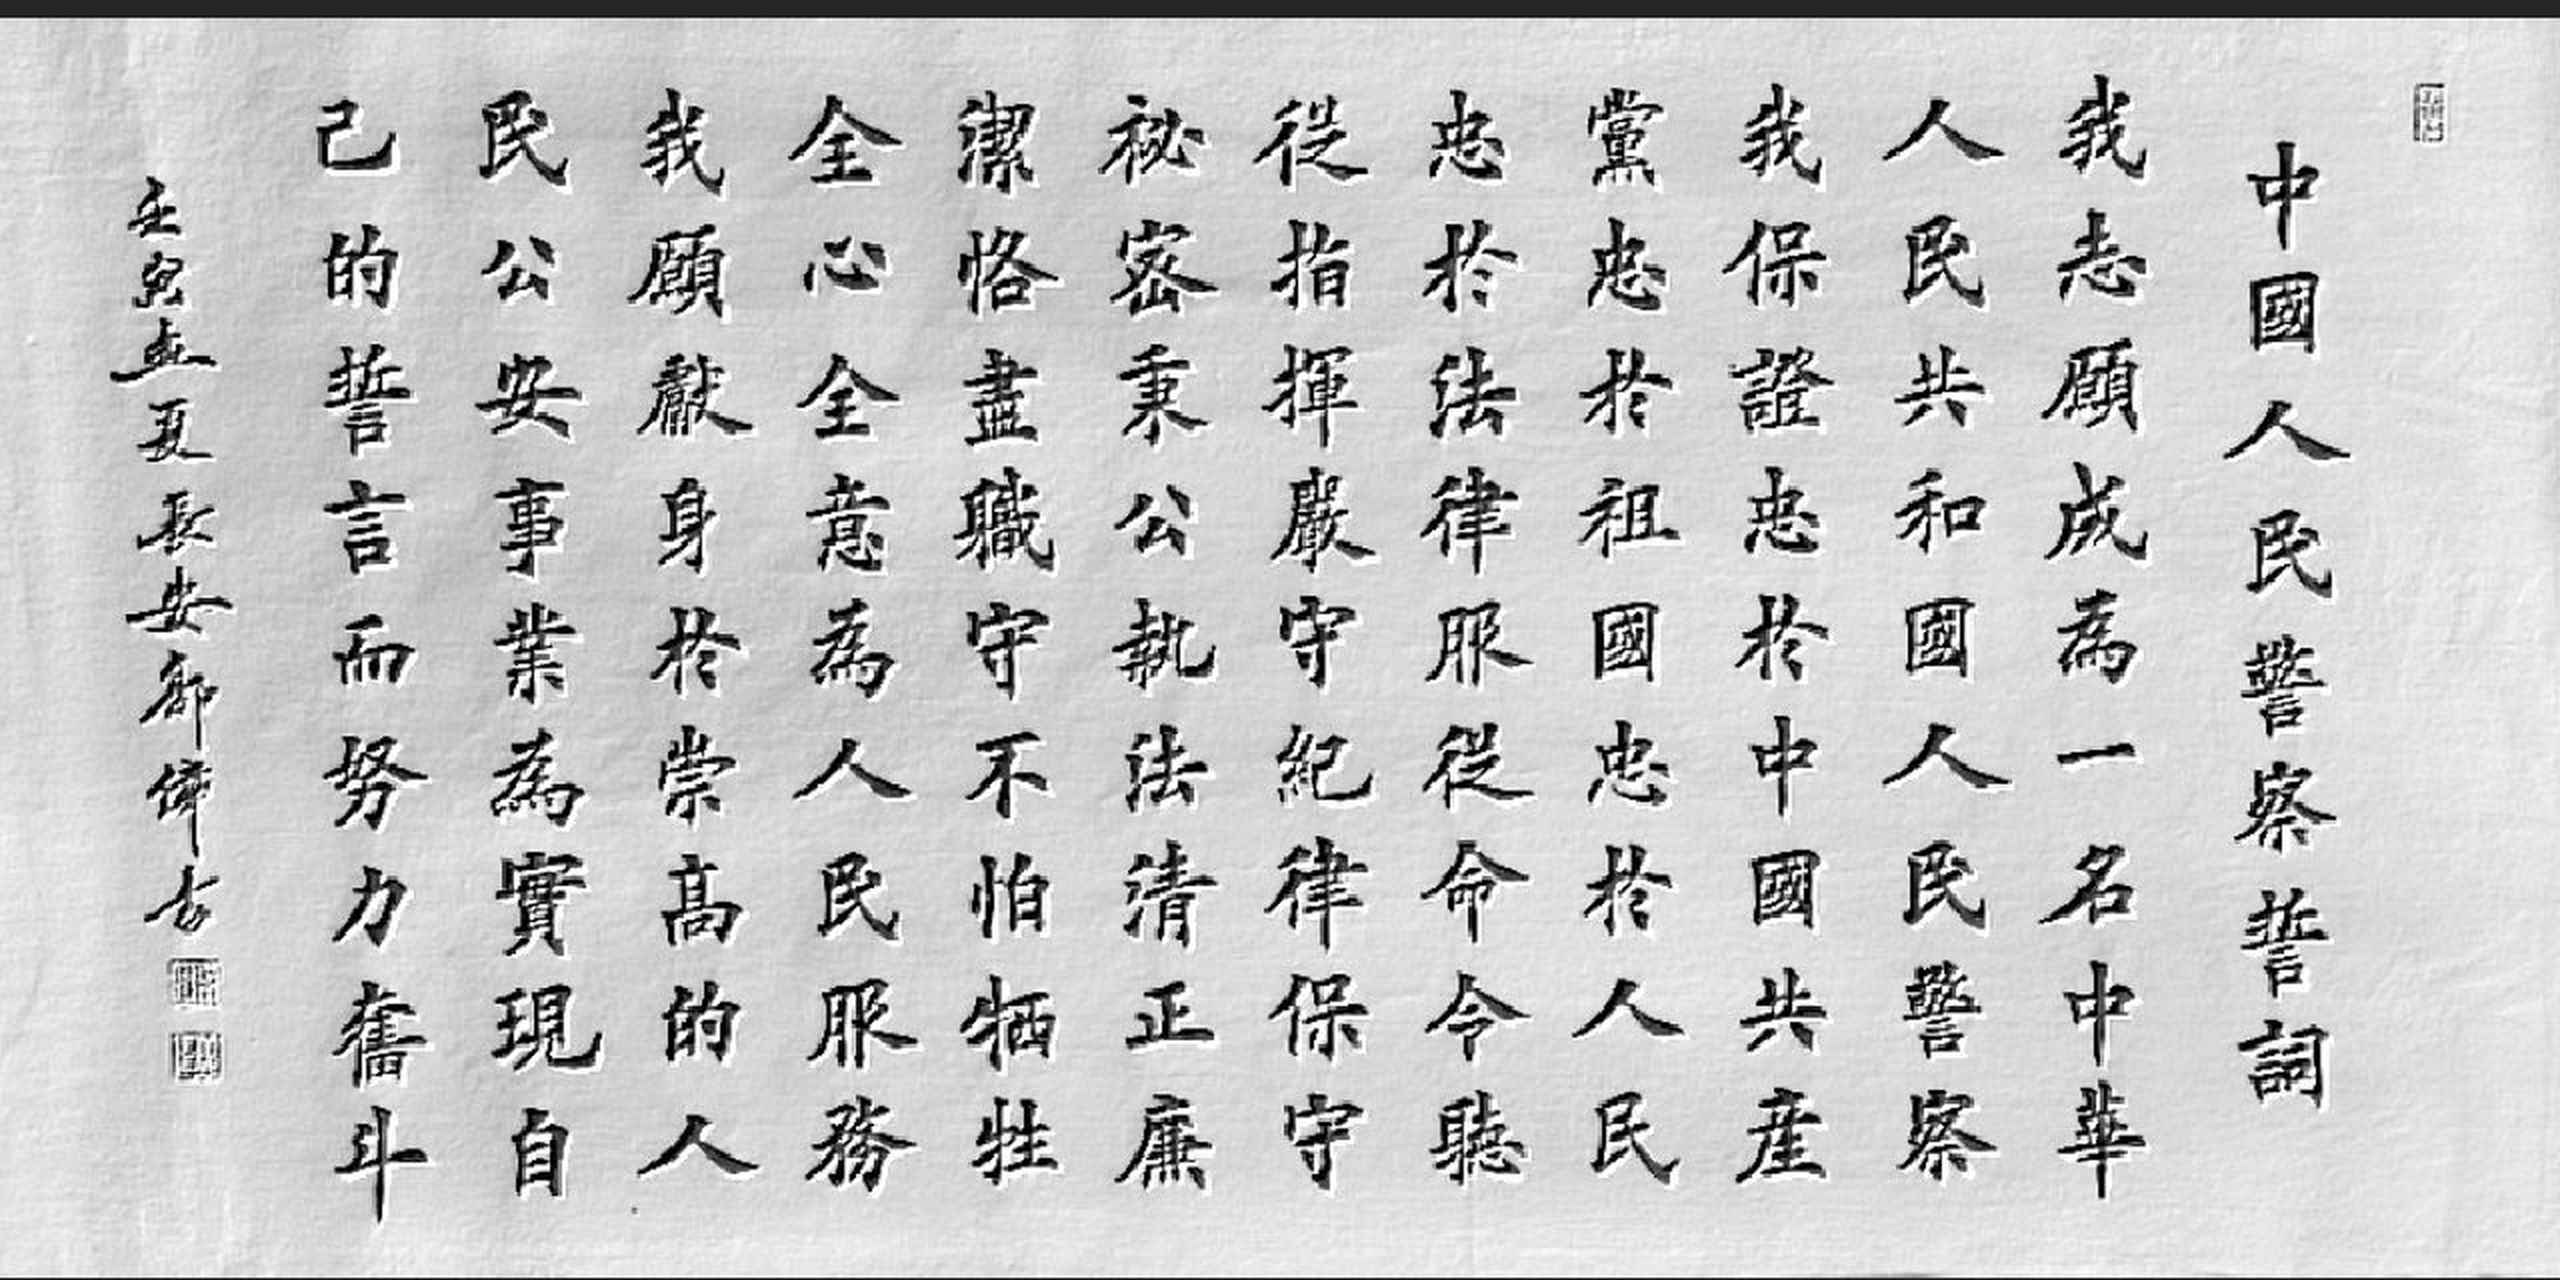 中國人民警察誓詞
我志願成為一名中華
人民共和國人民警察
我保證忠於中國共産
黨忠於祖國忠於人民
忠於法律服從命令聽
從指揮嚴守紀律保守
祕密秉公執法清正廉
潔恪盡職守不怕牺牲
全心全意為人民服務
我願獻身於崇高的人
民公安事業為實現自
己的誓言而努力奮斗
壬寅立夏長安郤偉書